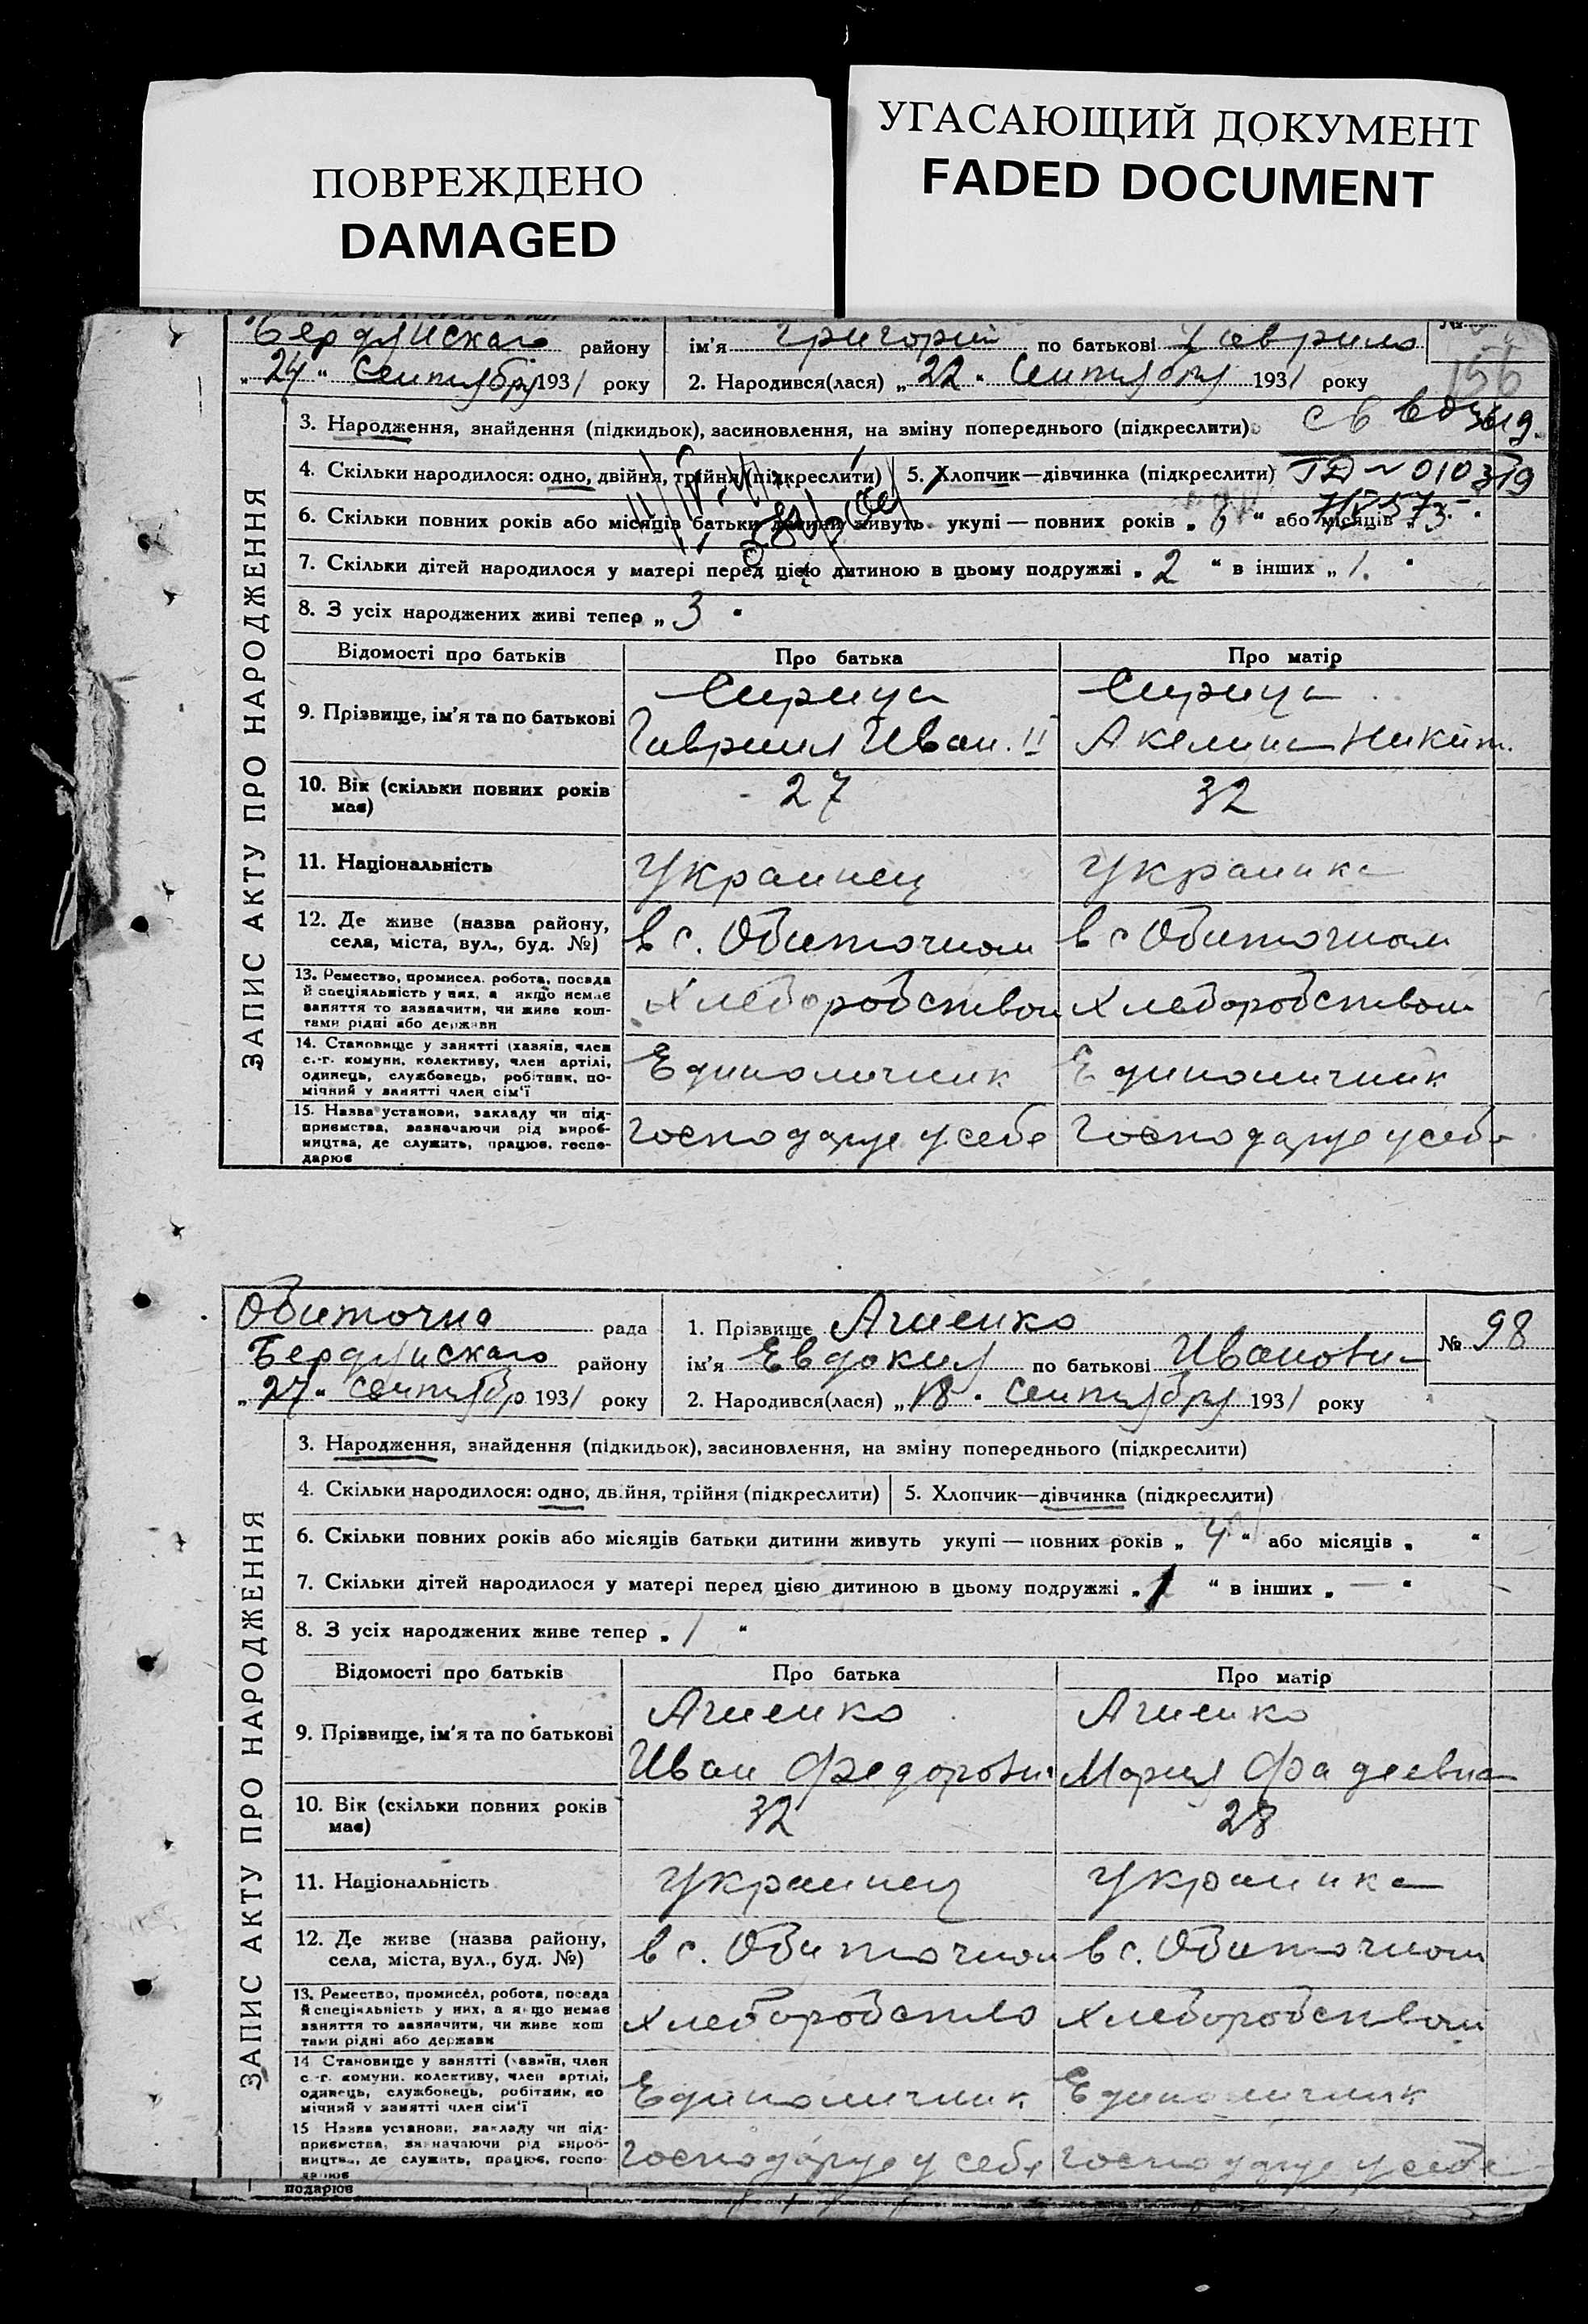 ПОВРЕЖДЕНО
DAMAGED
УГАСАЮЩИЙ ДОКУМЕНТ
FADED DOCUMENT
Бердянскаго району
"24" Сентября 1931 року
ім'я Григорий по батькові Гаврило
2. Народився(лася) „22" Сентября 1931 року
156
3. Народження, знайдення (підкидьок), засиновлення, на зміну попереднього (підкреслити)
4. Скільки народилося: одно, двійня, трійня (підкреслити)
5. Хлопчик—дівчинка (підкреслити)
010319
6. Скільки повних років або місяців батьки дитини живуть укупі — повних років „6" або місяців
7. Скільки дітей народилося у матері перед цією дитиною в цьому подружжі „2" в інших „1."
8. З усіх народжених живі тепер „3"
ЗАПИС АКТУ ПРО НАРОДЖЕННЯ
Відомості про батьків Про батька Про матір
9. Прізвище, ім'я та по батькові
Сирица
Гавриил Иван. II
Сирица
Акелина Никит.
10. Вік (скільки повних років має) 27 32
11. Національність Украинец Украинка
12. Де живе (назва району, села, міста, вул., буд. №) в с. Обиточном в с Обиточном
13. Ремество, промисел, робота, посада
й спеціяльність у них, а якщо немає
заняття то зазначити, чи живе кош-
тами рідні або держави
Хлеборобством Хлеборобством
14. Становище у занятті (хазяїн, член
с.-г. комуни, колективу, член артілі,
одинець, службовець, робітник, по-
мічний у занятті член сім'ї
Единоличник Единоличник
15. Назва установи, закладу чи під-
приємства, зазначаючи рід вироб-
ництва, де служить, працює, госпо-
дарює
Господарує у себе Господарує у себе
Обиточна рада
Бердянскаго району
„27" Сентябр 1931 року
1. Прізвище Агиенко
ім'я Евдокия по батькові Ивановн
2. Народився(лася) „18" Сентября 1931 року
№ 98
3. Народження, знайдення (підкидьок), засиновлення, на зміну попереднього (підкреслити)
4. Скільки народилося: одно, двійня, трійня (підкреслити)
5. Хлопчик—дівчинка (підкреслити)
6. Скільки повних років або місяців батьки дитини живуть укупі — повних років „4" або місяців „ "
7. Скільки дітей народилося у матері перед цією дитиною в цьому подружжі „1" в інших „—"
8. З усіх народжених живе тепер „1"
ЗАПИС АКТУ ПРО НАРОДЖЕННЯ
Відомості про батьків Про батька Про матір
9. Прізвище, ім'я та по батькові
Агиенко
Иван Федорови
Агиенко
Мария Фадеевна
10. Вік (скільки повних років має) 32 28
11. Національність Украинец Украинка
12. Де живе (назва району, села, міста, вул., буд. №) в с. Обиточном в с. Обиточном
13. Ремество, промисел, робота, посада
й спеціяльність у них, а якщо немає
заняття то зазначити, чи живе кош
тами рідні або держави
Хлеборобство Хлеборобством
14 Становище у занятті (хазяїн, член
с.-г. комуни, колективу, член артілі,
одинець, службовець, робітник, по
мічний у занятті член сім'ї
Единоличник Единоличник
15 Назва установи, закладу чи під-
приємства, зазначаючи рід вироб-
ництва, де служить, працює, госпо-
дарює
Господарує у себе Господарує у себе
подарює